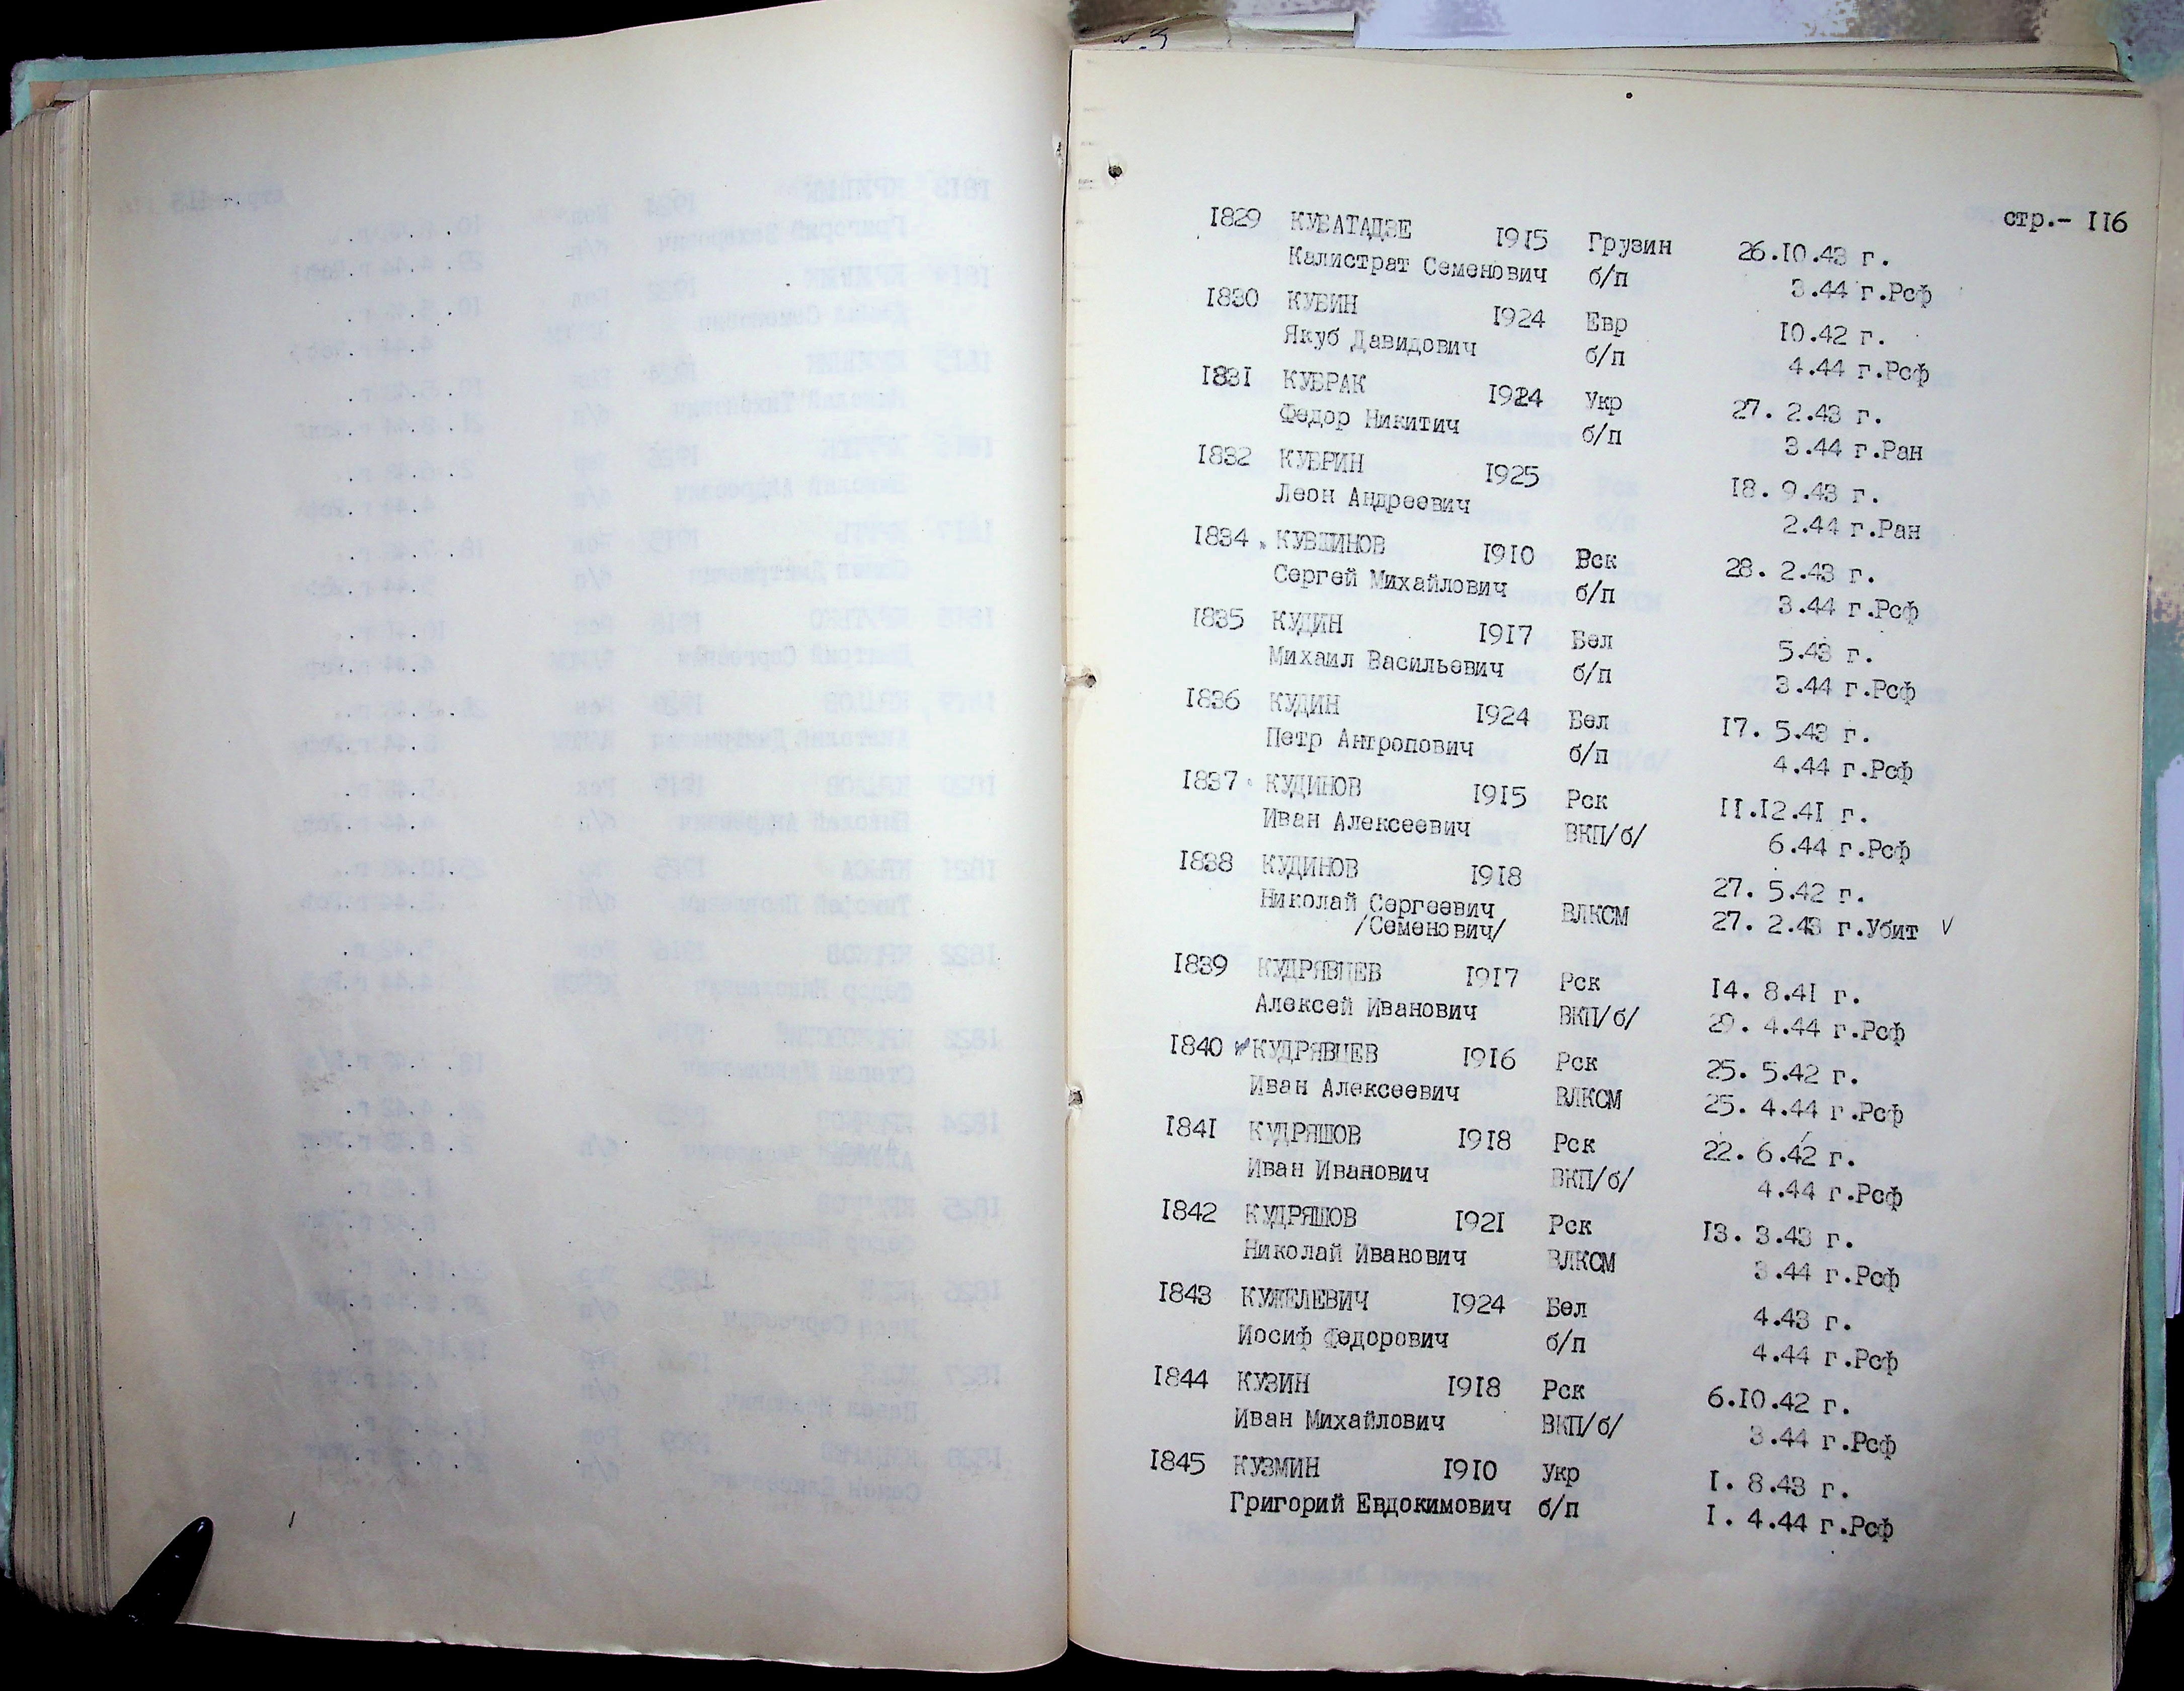 стр.- 116
1829 КУБАТАДЗЕ 1915 Грузин 26.10.43 г.
Калистрат Семенович б/п 3.44 г.Рсф
1830 КУБИН 1924 Евр 10.42 г.
Якуб Давидович б/п 4.44 г.Рсф
1831 КУБРАК 1924 Укр 27. 2.43 г.
Федор Никитич б/п 3.44 г.Ран
1832 КУБРИН 1925 18. 9.43 г.
Леон Андреевич 2.44 г.Ран
1834 КУВШИНОВ 1910 Рск 28. 2.43 г.
Сергей Михайлович б/п 3.44 г.Рсф
1835 КУДИН 1917 Бел 5.43 г.
Михаил Васильевич б/п 3.44 г.Рсф
1836 КУДИН 1924 Бел 17. 5.43 г.
Петр Антропович б/п 4.44 г.Рсф
1837 КУДИНОВ 1915 Рск 11.12.41 г.
Иван Алексеевич ВКП/б/ 6.44 г.Рсф
1838 КУДИНОВ 1918 27. 5.42 г.
Николай Сергеевич ВЛКСМ 27. 2.43 г.Убит ✓
/Семенович/
1839 КУДРЯВЦЕВ 1917 Рск 14. 8.41 г.
Алексей Иванович ВКП/б/ 29. 4.44 г.Рсф
1840 КУДРЯВЦЕВ 1916 Рск 25. 5.42 г.
Иван Алексеевич ВЛКСМ 25. 4.44 г.Рсф
1841 КУДРЯШОВ 1918 Рск 22. 6.42 г.
Иван Иванович ВКП/б/ 4.44 г.Рсф
1842 КУДРЯШОВ 1921 Рск 13. 3.43 г.
Николай Иванович ВЛКСМ 3.44 г.Рсф
1843 КУЖЕЛЕВИЧ 1924 Бел 4.43 г.
Иосиф Федорович б/п 4.44 г.Рсф
1844 КУЗИН 1918 Рск 6.10.42 г.
Иван Михайлович ВКП/б/ 3.44 г.Рсф
1845 КУЗМИН 1910 Укр 1. 8.43 г.
Григорий Евдокимович б/п 1. 4.44 г.Рсф